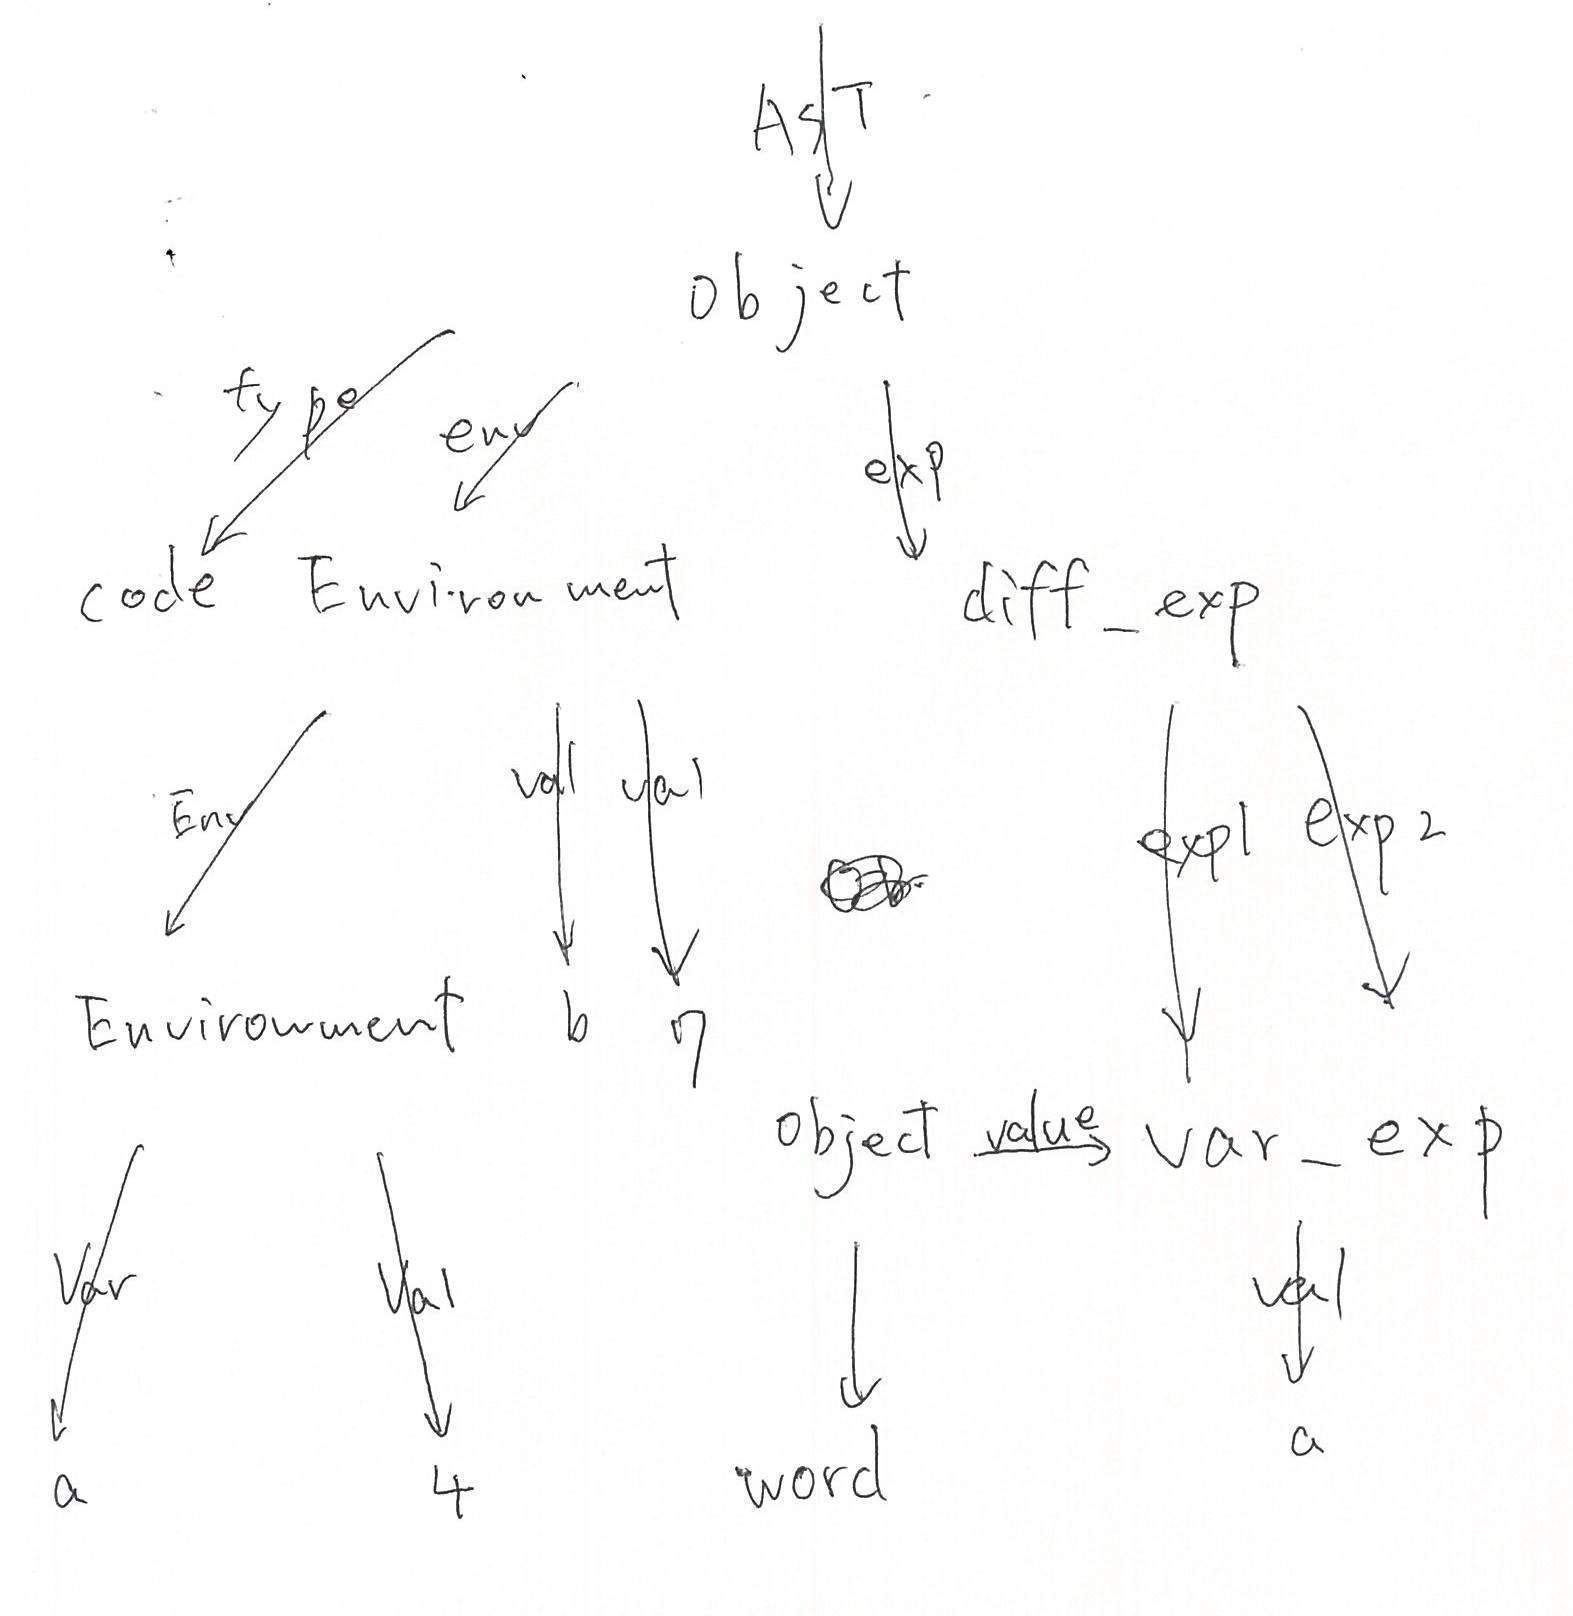 AST
Object
type env exp
code Environment diff_exp
Env val val exp1 exp2
Environment b 7
Object value var_exp
Var Val val
a 4 word a